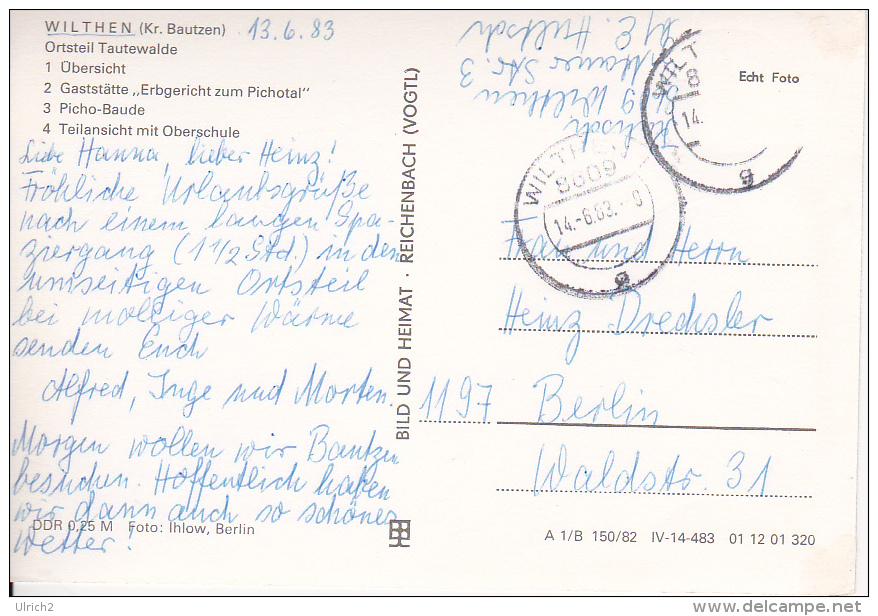 WILTHEN (Kr. Bautzen) 13.6.83
Ortsteil Tautewalde
1 Übersicht
2 Gaststätte „Erbgericht zum Pichotal"
3 Picho-Baude
4 Teilansicht mit Oberschule
Liebe Hanna, lieber Heinz!
Fröhliche Urlaubsgrüße
nach einem langen Spa-
ziergang (1 1/2 Std.) in den
umseitigen Ortsteil
bei molliger Wärme
senden Euch
Alfred, Inge und Morten.
Morgen wollen wir Bautzen
besuchen. Hoffentlich haben
wir dann auch so schönes
Wetter!
DDR 0,25 M Foto: Ihlow, Berlin
BILD UND HEIMAT · REICHENBACH (VOGTL)
9 Wilthen
Str. 3
Echt Foto
WILT
8
14.
g
WILTHEN
8609
14.-6.83.-
g
Frau und Herrn
Heinz Drechsler
1197 Berlin
Waldstr. 31
A 1/B 150/82 IV-14-483 01 12 01 320
Ulrich2
delcampe.net